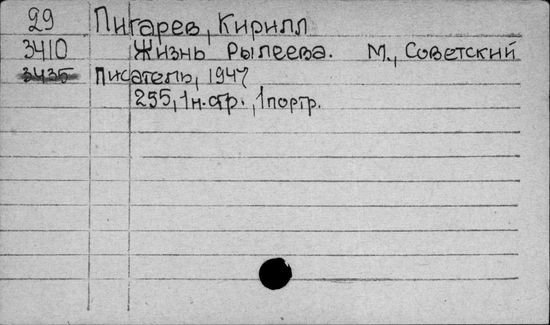 29 Пигарев, Кирилл
3410 Жизнь Рылеева. М., Советский
3435 Писатель, 1947
255, 1 н. стр., 1 портр.